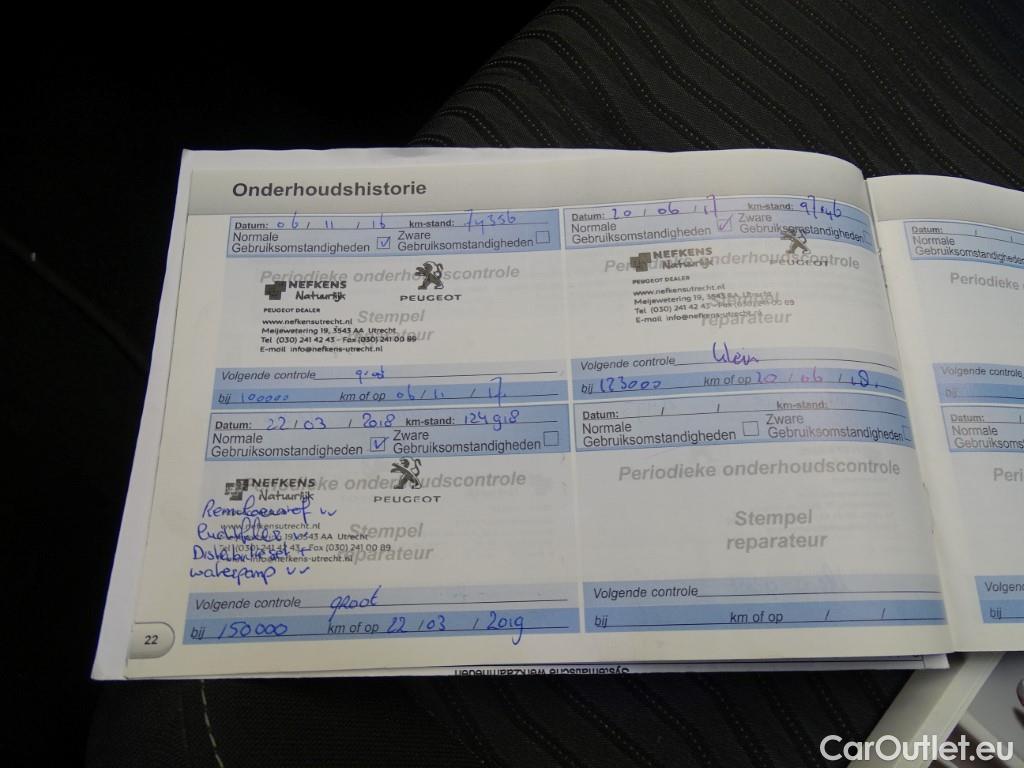 Onderhoudshistorie
Datum: 06 / 11 / 16 km-stand: 74356
Normale
Gebruiksomstandigheden
Zware
Gebruiksomstandigheden
Periodieke onderhoudscontrole
NEFKENS
Natuurlijk
PEUGEOT
PEUGEOT DEALER
Stempel
reparateur
www.nefkensutrecht.nl
Meijewetering 19, 3543 AA Utrecht
Tel (030) 241 42 43 - Fax (030) 241 00 89
E-mail info@nefkens-utrecht.nl
Volgende controle groot
bij 100000 km of op 06 / 11 / 17
Datum: 20 / 06 / 17 km-stand:
Normale
Gebruiksomstandigheden
Zware
Gebruiksomstandigheden
Periodieke onderhoudscontrole
NEFKENS
Natuurlijk
PEUGEOT
PEUGEOT DEALER
Stempel
reparateur
www.nefkensutrecht.nl
Meijewetering 19, 3543 AA Utrecht
Tel (030) 241 42 43 - Fax (030) 241 00 89
E-mail info@nefkens-utrecht.nl
Volgende controle klein
bij 123000 km of op 20 / 06 / 18.
Datum: 22 / 03 / 2018 km-stand: 124918
Normale
Gebruiksomstandigheden
Zware
Gebruiksomstandigheden
Periodieke onderhoudscontrole
NEFKENS
Natuurlijk
PEUGEOT
Stempel
reparateur
www.nefkensutrecht.nl
19, 3543 AA Utrecht
Tel (030) 241 42 43 - Fax (030) 241 00 89
info@nefkens-utrecht.nl
Remvloeistof vv
Distributieset +
waterpomp vv
Volgende controle groot
bij 150000 km of op 22 / 03 / 2019
Datum: / / km-stand:
Normale
Gebruiksomstandigheden
Zware
Gebruiksomstandigheden
Periodieke onderhoudscontrole
Stempel
reparateur
Volgende controle
bij km of op / /
22
Datum: / /
Normale
Gebruiksomstandigheden
Periodieke
Volgende controle
bij
Datum: /
Normale
Gebruiksomstandigheden
Peri
Volgende
bij
Systematische werkzaamheden
CarOutlet.eu